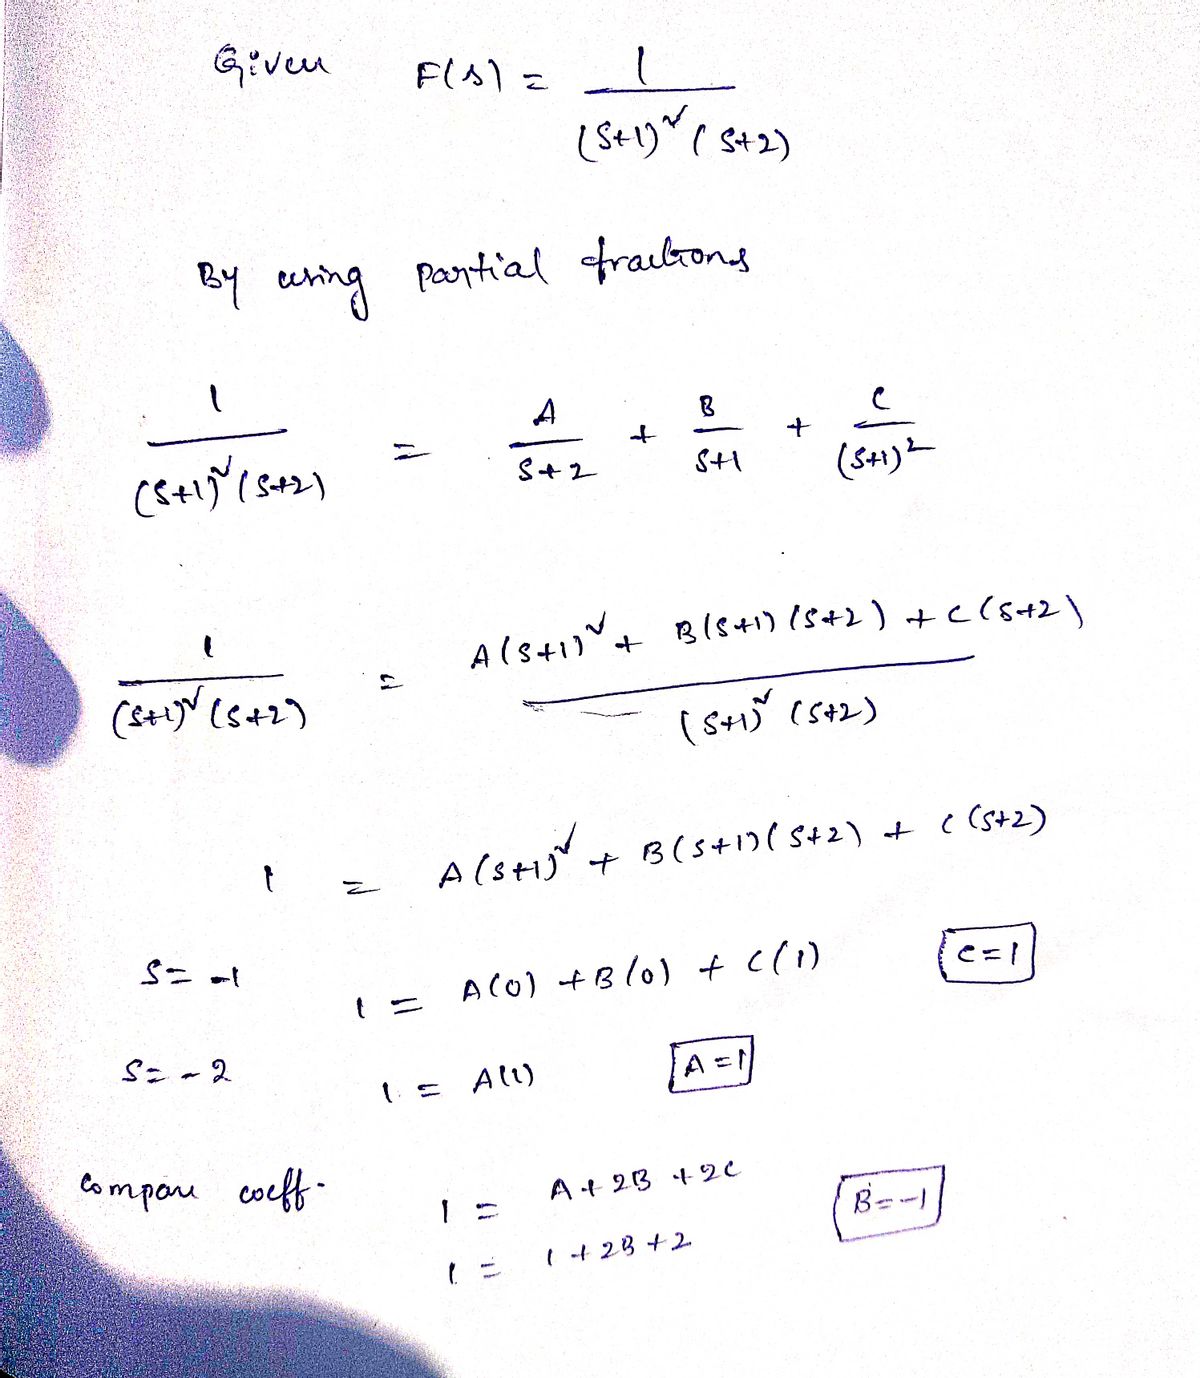 Given F(s) = 1 / (s+1)² (s+2)
By using partial fractions
1 / (s+1)² (s+2) = A / s+2 + B / s+1 + C / (s+1)²
1 / (s+1)² (s+2) = A(s+1)² + B(s+1)(s+2) + C(s+2) / (s+1)² (s+2)
1 = A(s+1)² + B(s+1)(s+2) + C(s+2)
s = -1 1 = A(0) + B(0) + C(1) C=1
s = -2 1 = A(1) A=1
Compare coeff. 1 = A + 2B + 2C B=-1
1 = 1 + 2B + 2